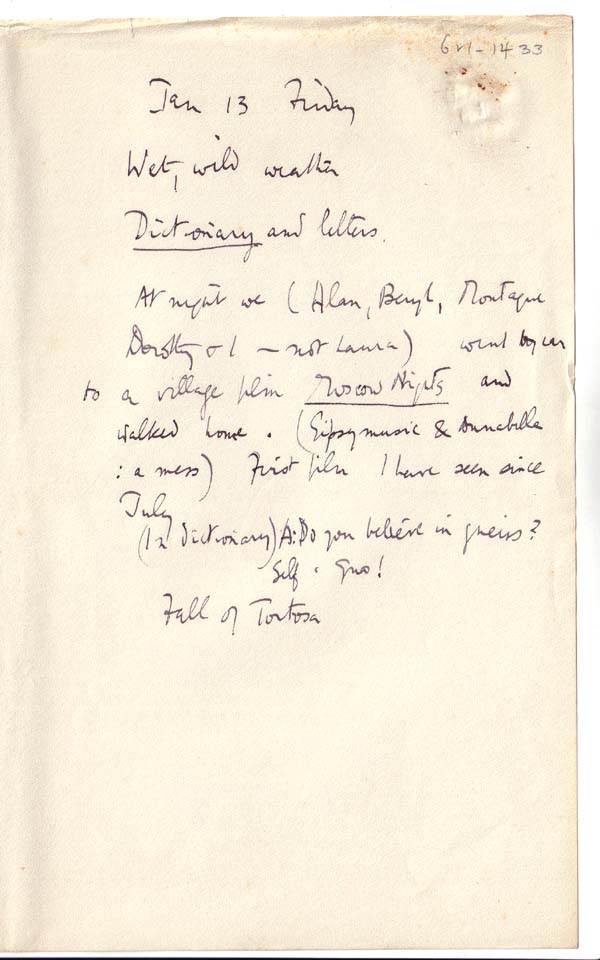 6v1-1433
Jan 13 Friday
Wet, wild weather
Dictionary and letters.
At night we (Alan, Beryl, Montague
Dorothy & I — not Laura) went by car
to a village film Moscow Nights and
walked home. (Gipsy music & Annabella
: a mess) First film I have seen since
July
(In dictionary) A: Do you believe in gneiss?
Self: Guo!
Fall of Tortosa